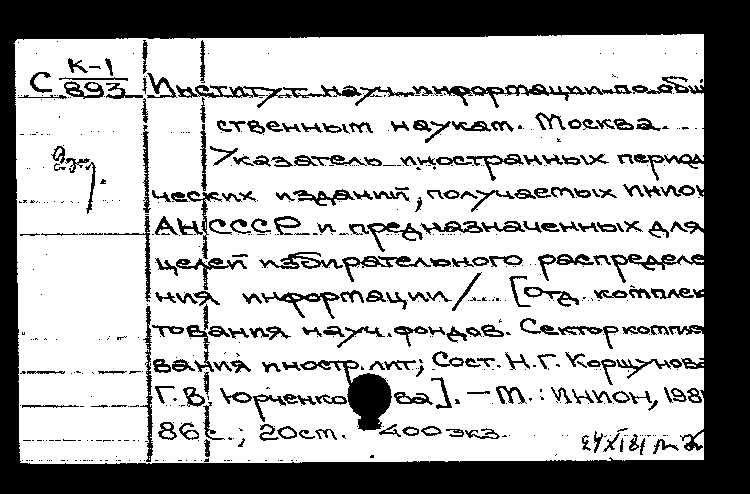 К-1
С 893 Институт науч. информации по общ
ственным наукам. Москва.
Указатель иностранных период
ческих изданий, получаемых ИНИОН
АН СССР и предназначенных для
целей избирательного распределе
ния информации / [Отд. комплек
тования науч. фондов. Сектор комплек
вания иностр. лит; Сост. Н.Г. Коршунова
Г.В. Юрченко ва]. — М.: ИНИОН, 198
86 с.; 20 см. 400 экз.